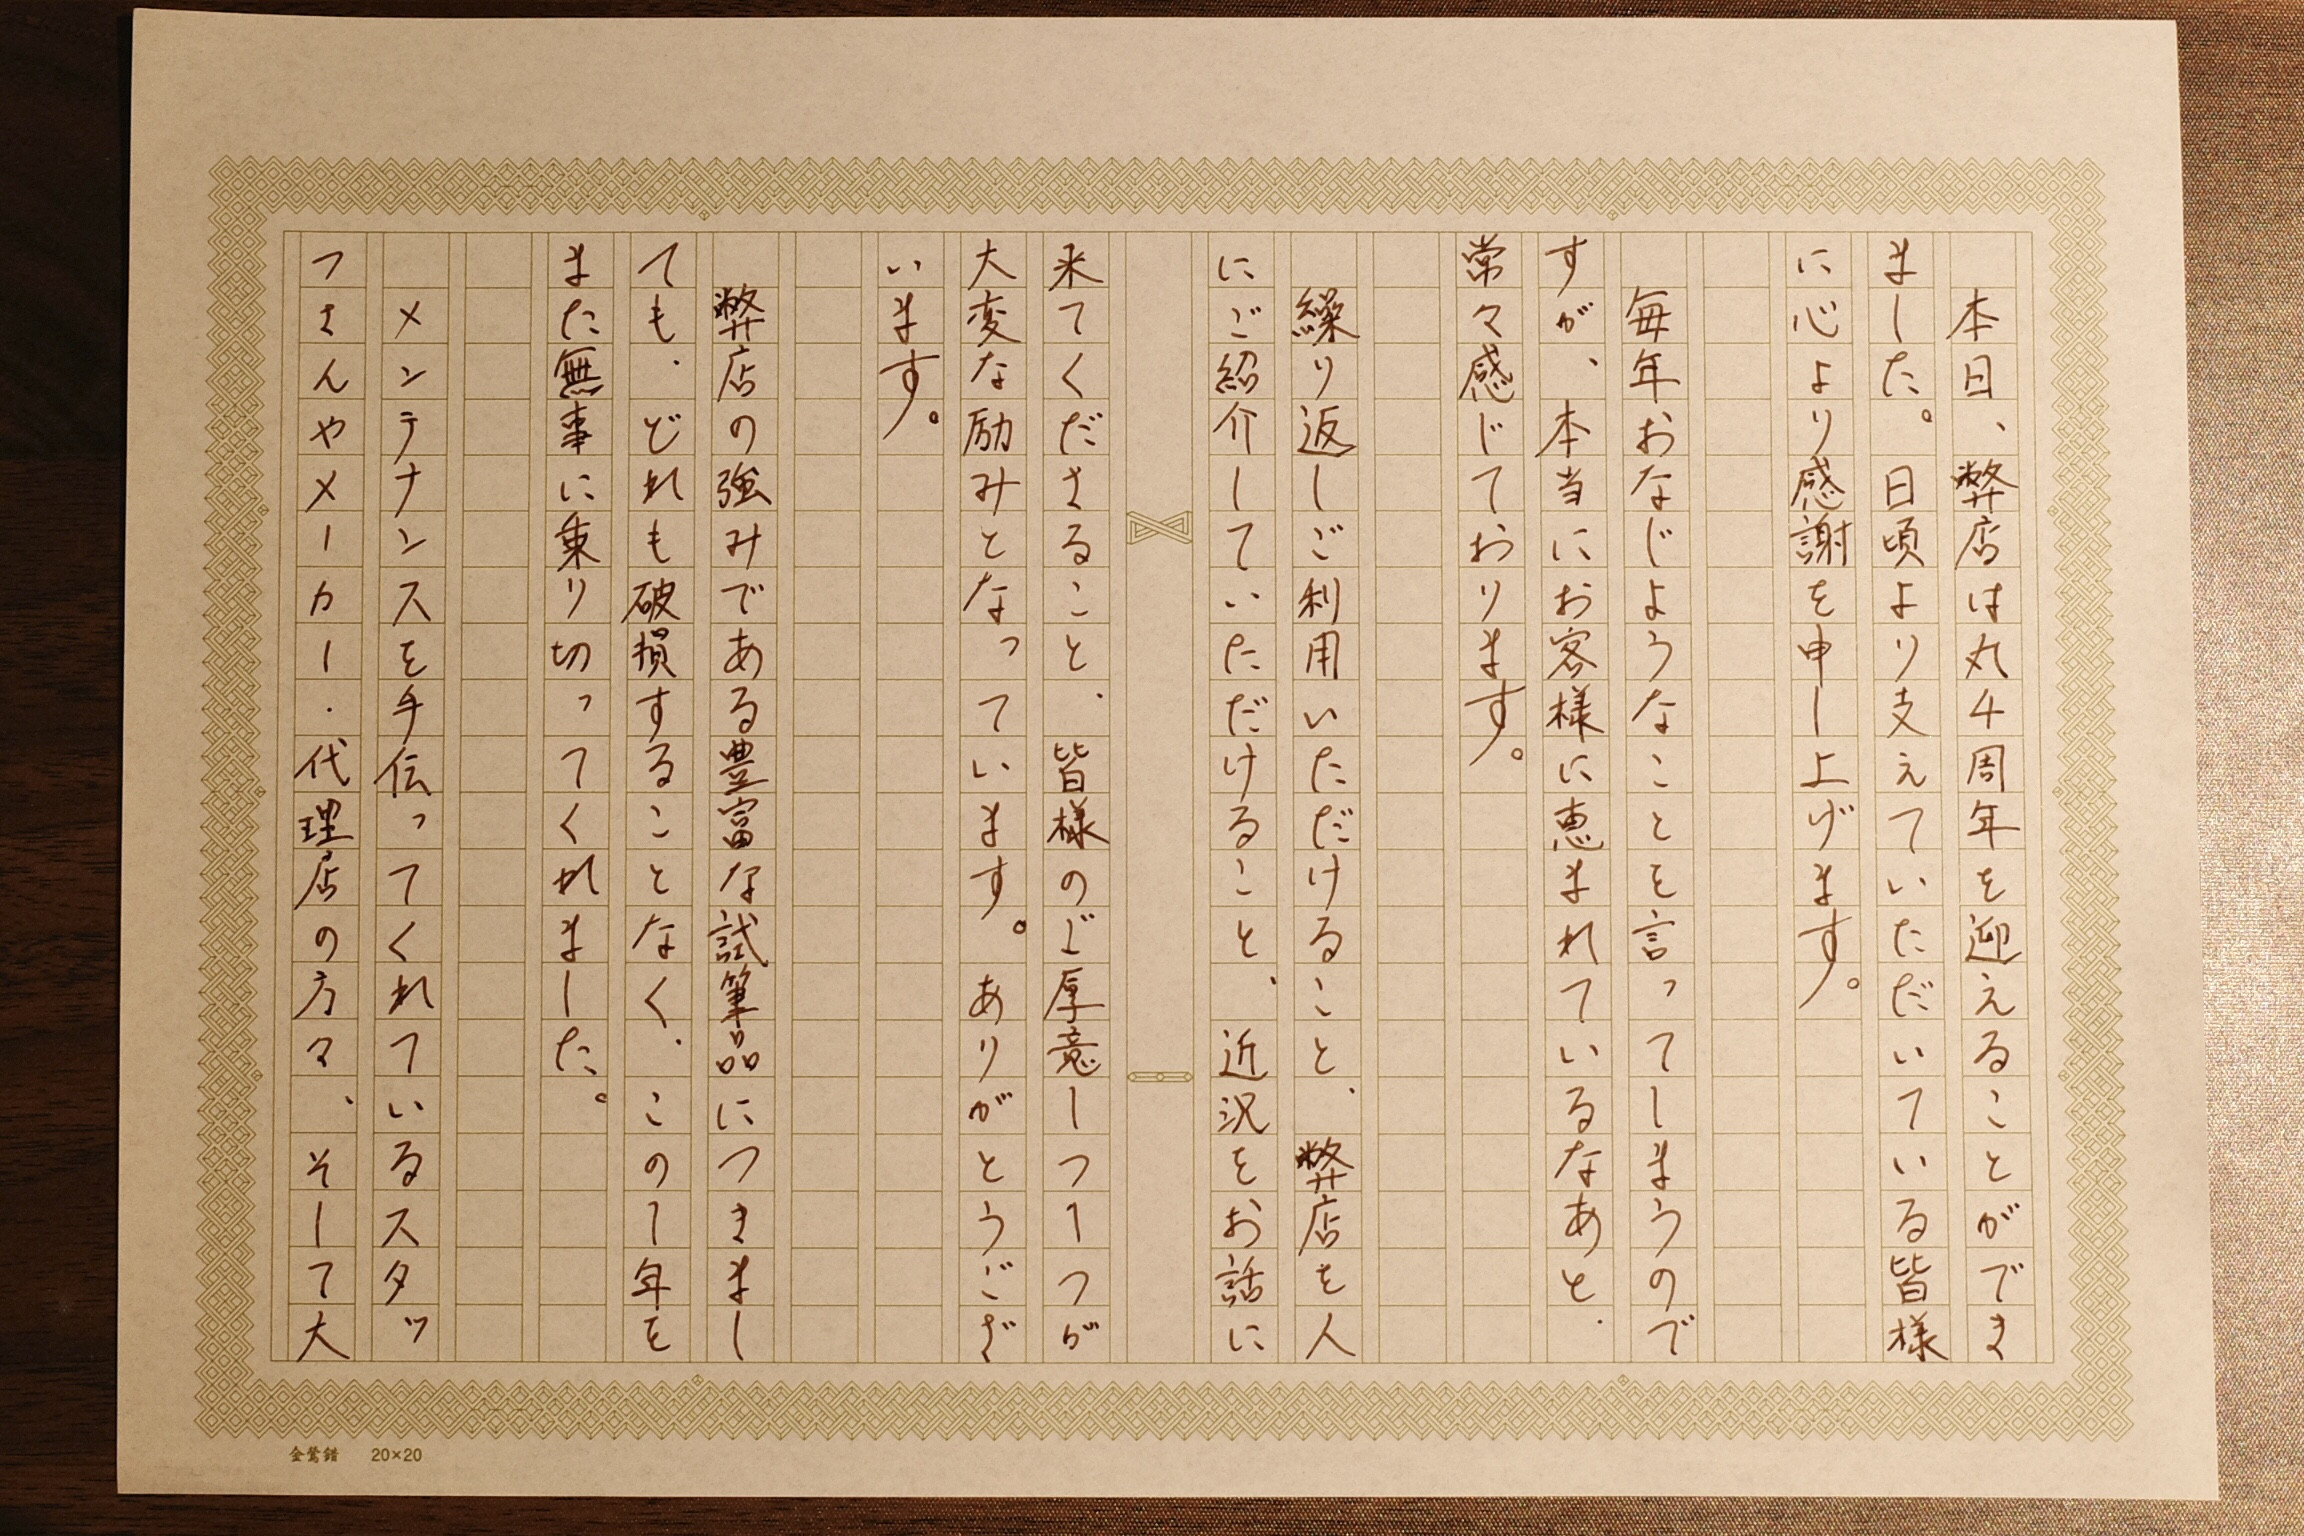 本日、弊店は丸4周年を迎えることができま
ました。日頃より支えていただいている皆様
に心より感謝を申し上げます。
毎年おなじようなことを言ってしまうので
すが、本当にお客様に恵まれているなあと、
常々感じております。
繰り返しご利用いただけること、弊店を人
にご紹介していただけること、近況をお話に
来てくださること、皆様のご厚意一つ一つが
大変な励みとなっています。ありがとうござ
います。
弊店の強みである豊富な試筆品につきまし
ても、どれも破損することなく、この1年を
また無事に乗り切ってくれました。
メンテナンスを手伝ってくれているスタッ
フさんやメーカー・代理店の方々、そして大
金鶯錯 20×20